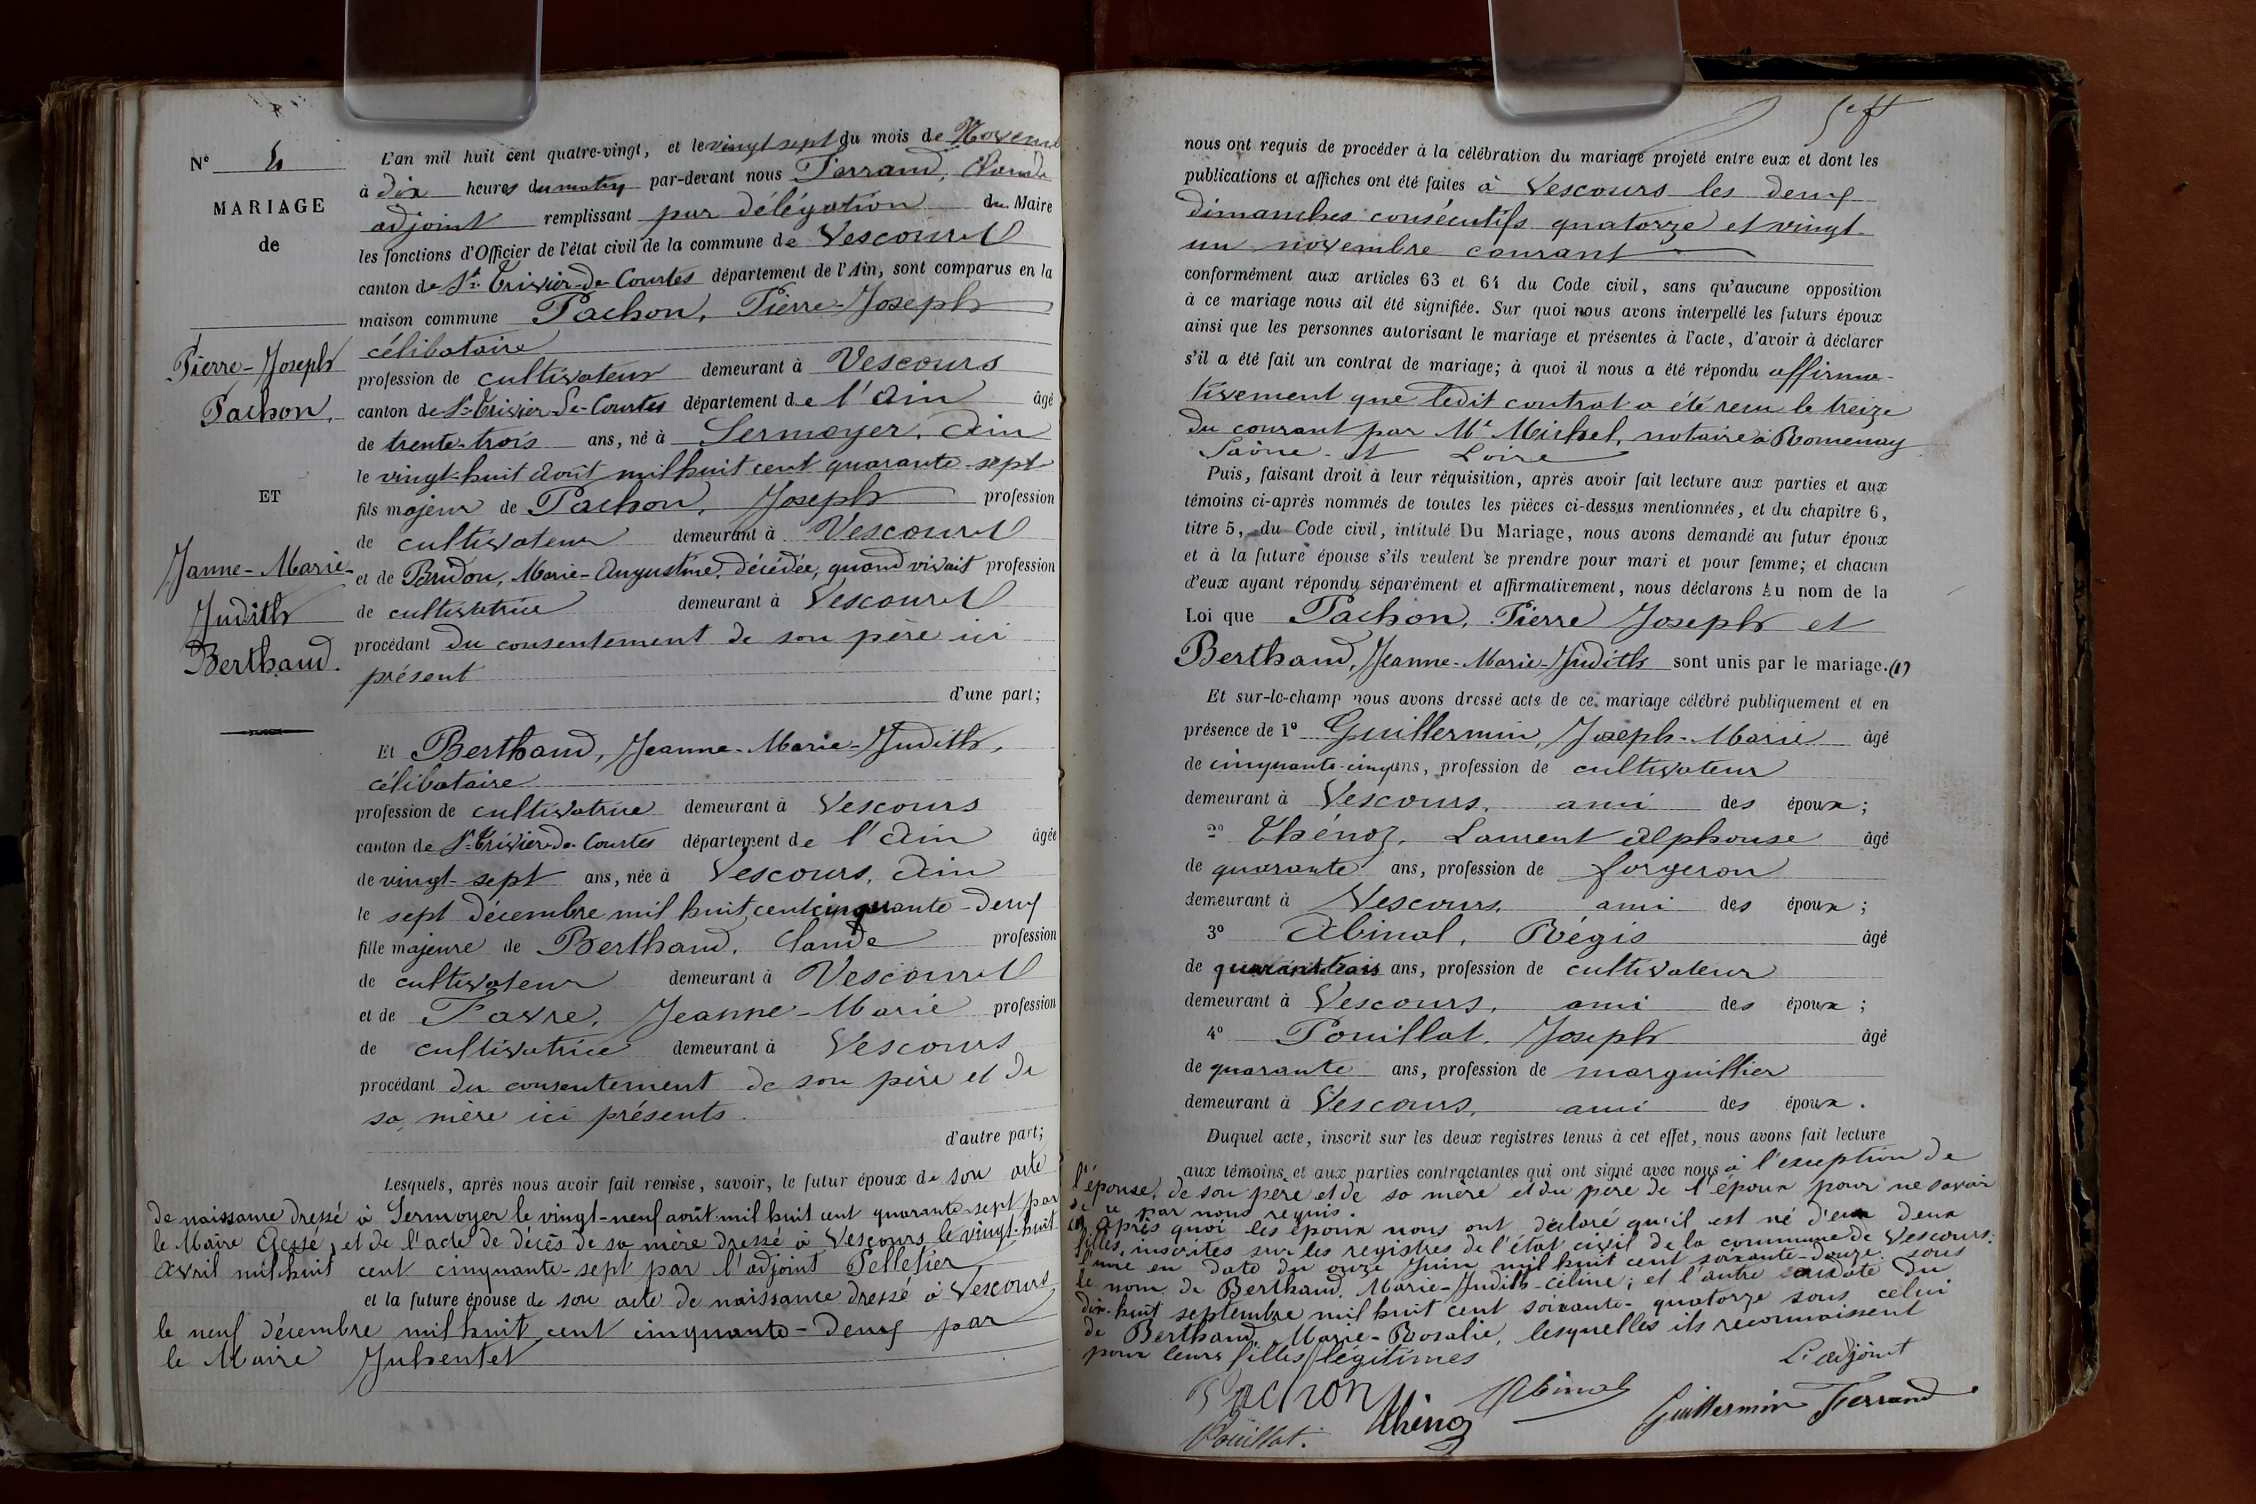 N° 4
MARIAGE
de
Pierre-Joseph
Pachon,
ET
Jeanne-Marie-
Judith
Berthaud.
L'an mil huit cent quatre-vingt, et le vingt sept du mois de Novembre
à dix heures du matin par-devant nous Ferrand, Claude
adjoint remplissant par délégation du Maire
les fonctions d'Officier de l'état civil de la commune de Vescours
canton de St Trivier-de-Courtes département de l'Ain, sont comparus en la
maison commune Pachon, Pierre-Joseph
célibataire
profession de cultivateur demeurant à Vescours
canton de St Trivier-de-Courtes département de l'Ain âgé
de trente-trois ans, né à Sermoyer, Ain
le vingt-huit août mil huit cent quarante-sept
fils majeur de Pachon, Joseph profession
de cultivateur demeurant à Vescours
et de Baudon, Marie-Augustine, décédée, quand vivait profession
de cultivatrice demeurant à Vescours
procédant du consentement de son père ici
présent
d'une part;
Et Berthaud, Jeanne-Marie-Judith,
célibataire
profession de cultivatrice demeurant à Vescours
canton de St Trivier-de-Courtes département de l'Ain âgée
de vingt-sept ans, née à Vescours, Ain
le sept décembre mil huit cent cinquante-deux
fille majeure de Berthaud, Claude profession
de cultivateur demeurant à Vescours
et de Favre, Jeanne-Marie profession
de cultivatrice demeurant à Vescours
procédant du consentement de son père et de
sa mère ici présents.
d'autre part;
Lesquels, après nous avoir fait remise, savoir, le futur époux de son acte
de naissance dressé à Sermoyer le vingt-neuf août mil huit cent quarante-sept par
le Maire, et de l'acte de décès de sa mère dressé à Vescours le vingt-huit
avril mil huit cent cinquante-sept par l'adjoint Pelletier
et la future épouse de son acte de naissance dressé à Vescours
le neuf décembre mil huit cent cinquante-deux par
le Maire
nous ont requis de procéder à la célébration du mariage projeté entre eux et dont les
publications et affiches ont été faites à Vescours les deux
dimanches consécutifs quatorze et vingt-
un novembre courant
conformément aux articles 63 et 64 du Code civil, sans qu'aucune opposition
à ce mariage nous ait été signifiée. Sur quoi nous avons interpellé les futurs époux
ainsi que les personnes autorisant le mariage et présentes à l'acte, d'avoir à déclarer
s'il a été fait un contrat de mariage; à quoi il nous a été répondu affirma-
tivement que ledit contrat a été reçu le treize
du courant par Me Michel, notaire à Romenay
Saône-et Loire
Puis, faisant droit à leur réquisition, après avoir fait lecture aux parties et aux
témoins ci-après nommés de toutes les pièces ci-dessus mentionnées, et du chapitre 6,
titre 5, du Code civil, intitulé Du Mariage, nous avons demandé au futur époux
et à la future épouse s'ils veulent se prendre pour mari et pour femme; et chacun
d'eux ayant répondu séparément et affirmativement, nous déclarons au nom de la
Loi que Pachon, Pierre Joseph et
Berthaud, Jeanne-Marie-Judith sont unis par le mariage. (1)
Et sur-le-champ nous avons dressé acte de ce mariage célébré publiquement et en
présence de 1° Guillermin, Joseph-Marie âgé
de cinquante-cinq ans, profession de cultivateur
demeurant à Vescours, ami des époux;
2° Thénoz, Laurent Alphonse âgé
de quarante ans, profession de forgeron
demeurant à Vescours, ami des époux;
3° Abinal, Régis âgé
de quarante trois ans, profession de cultivateur
demeurant à Vescours, ami des époux;
4° Pouillat, Joseph âgé
de quarante ans, profession de marguillier
demeurant à Vescours, ami des époux.
Duquel acte, inscrit sur les deux registres tenus à cet effet, nous avons fait lecture
aux témoins et aux parties contractantes qui ont signé avec nous à l'exception de
l'épouse, de son père et de sa mère et du père de l'époux pour ne savoir
de ce par nous requis.
(1) Après quoi les époux nous ont déclaré qu'il est né d'eux deux
filles, inscrites sur les registres de l'état civil de la commune de Vescours:
l'une en date du onze juin mil huit cent soixante-douze sous
le nom de Berthaud, Marie-Judith-Céline; et l'autre en date du
dix-huit septembre mil huit cent soixante-quatorze sous celui
de Berthaud, Marie-Rosalie, lesquelles ils reconnaissent
pour leurs filles légitimes
L'adjoint
Pachon Abinal
Thénoz Guillermin Ferrand
Pouillat.